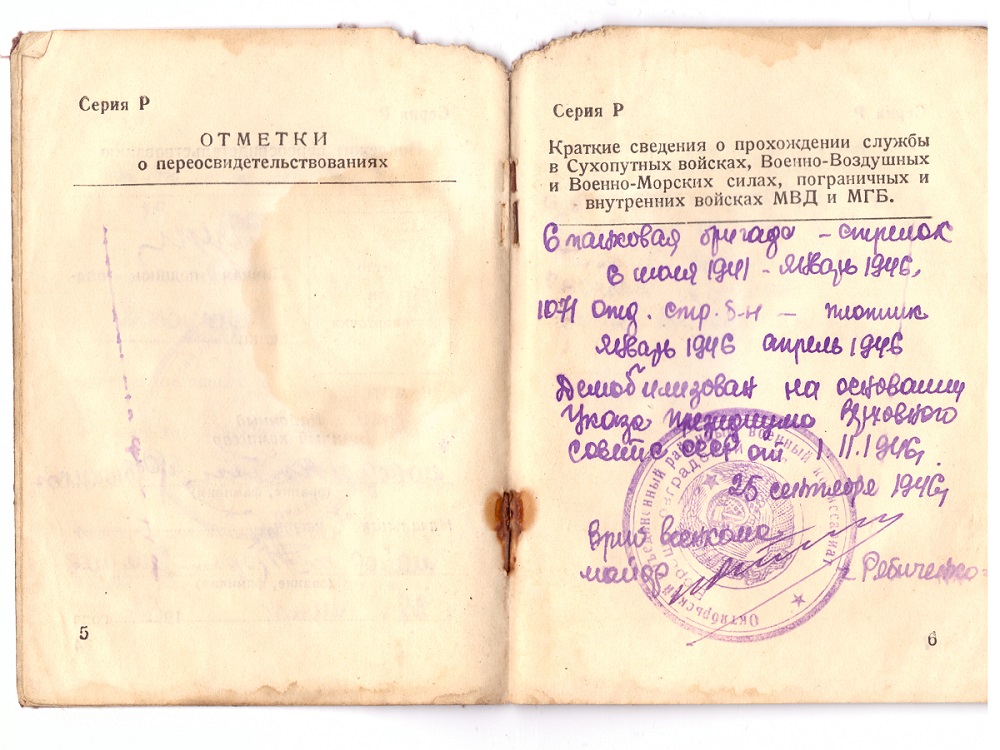 Серия Р
ОТМЕТКИ
о переосвидетельствованиях
5
Серия Р
Краткие сведения о прохождении службы
в Сухопутных войсках, Военно-Воздушных
и Военно-Морских силах, пограничных и
внутренних войсках МВД и МГБ.
6 танковая бригада – стрелок
июля 1941 – январь 1946,
1071 Отд. стр. б-н – плотник
январь 1946 апрель 1946
Демобилизован на основании
Указа Президиума Верховного
совета СССР от 1.II.1946,
25 сентября 1946,
Врио военкома
майор Рябиченко
Октябрьский объединенный районный военный комиссариат
6